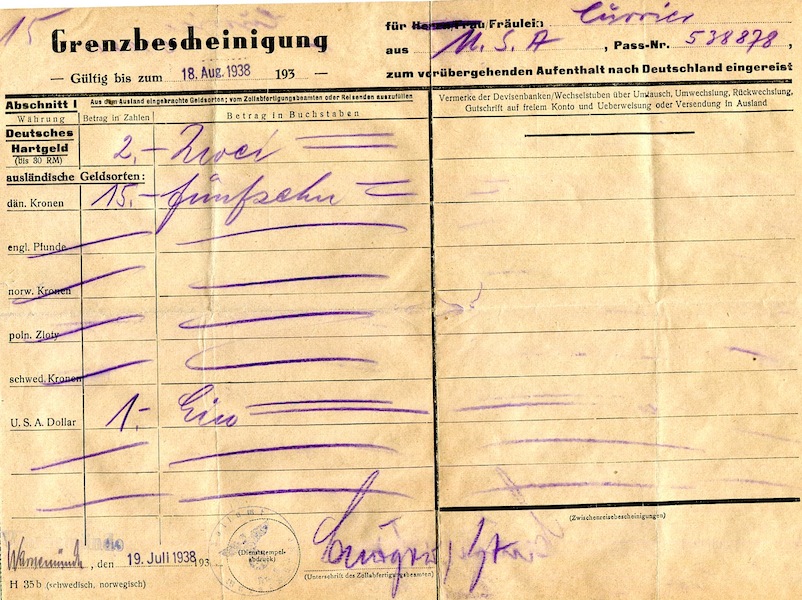 15
Grenzbescheinigung
— Gültig bis zum 18. Aug. 1938 193 —
für Herrn/Frau/Fräulein Currier
aus U. S. A , Pass-Nr. 538878 ,
zum vorübergehenden Aufenthalt nach Deutschland eingereist
Abschnitt I
Aus dem Ausland eingebrachte Geldsorten; vom Zollabfertigungsbeamten oder Reisenden auszufüllen
Währung Betrag in Zahlen Betrag in Buchstaben
Vermerke der Devisenbanken/Wechselstuben über Umtausch, Umwechslung, Rückwechslung,
Gutschrift auf freiem Konto und Ueberweisung oder Versendung in Ausland
Deutsches
Hartgeld 2,- Zwei
(bis 30 RM)
ausländische Geldsorten:
dän. Kronen 15.- fünfzehn
engl. Pfunde
norw. Kronen
poln. Zloty
schwed. Kronen
U. S. A. Dollar 1.- Ein
(Zwischenreisebescheinigungen)
Warnemünde, den 19. Juli 1938 193
(Dienststempel-
abdruck)
(Unterschrift des Zollabfertigungsbeamten)
H 35 b (schwedisch, norwegisch)